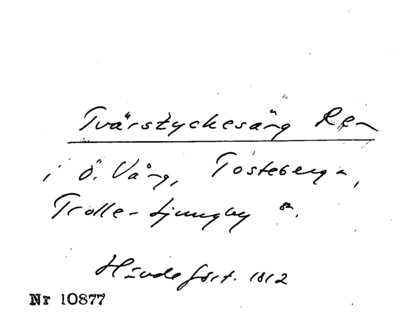 Tvärstyckesäng Ren
i Ö. Vång, Tosteberga,
Trolle-Ljungby sn.
Hävdefört. 1812
Nr 10877